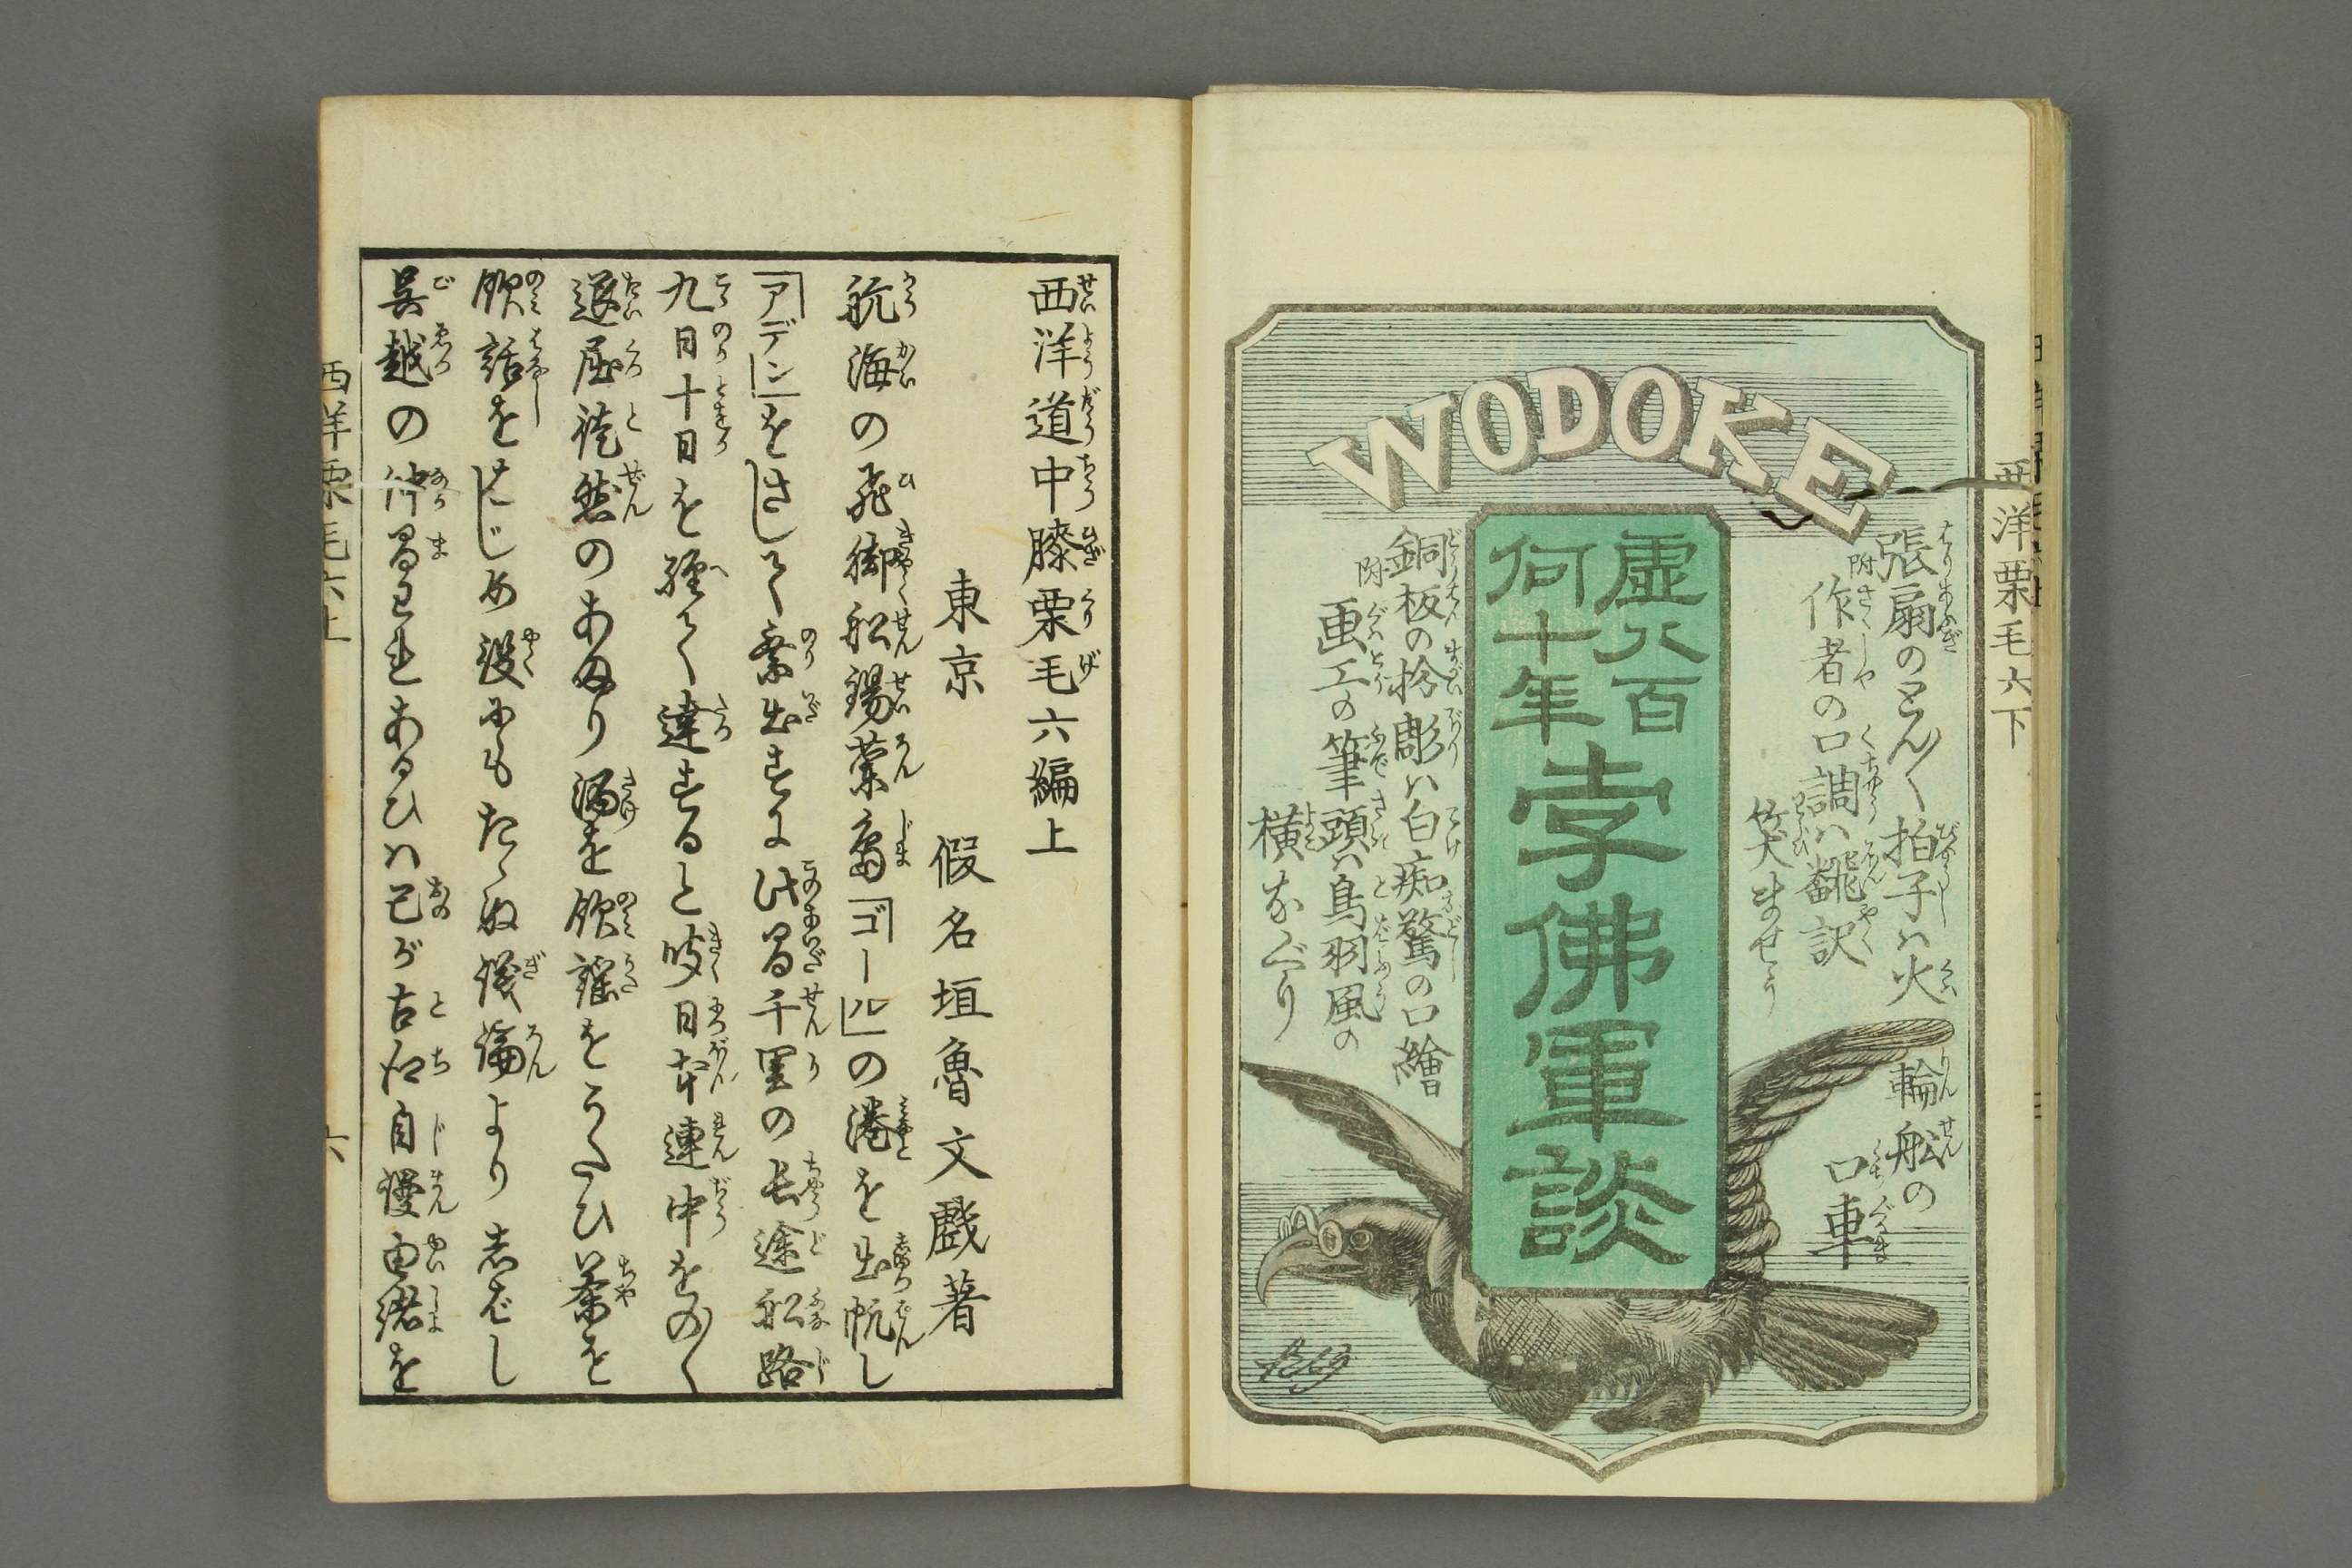 WODOKE
張扇のとん〱拍子ハ火輪船の口車
附 作者の口調ハ飜訳笑ませう
虚八百
何十年
孛佛軍談
銅板の擬彫ハ白痴驚の口繪
附 画工の筆頭ハ鳥羽風の横なぐり
西洋栗毛六下
西洋道中膝栗毛六編上
東京 假名垣魯文戲著
航海の飛脚船錫蘭島「ゴール」の港を出帆し
「アデン」をさして乗出すに此間千里の長途船路
九日十日を経て達すると聞日本連中をのく
退屈徒然のあまり酒を飲謡をうたひ茶を
飲話をはじめ役にもたゝぬ議論より志ばし
呉越の仲間われあるひハ己が古郷自慢由緒を
西洋栗毛六上
六